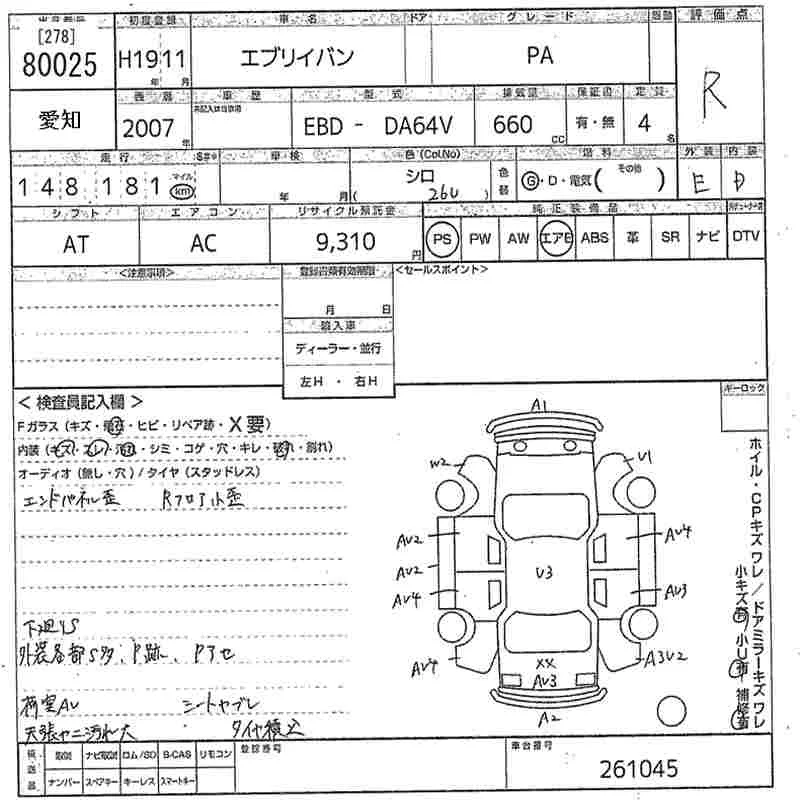 出品番号 初度登録 車名 ドア グレード 駆動 評価点
[278]
80025 H19 11 エブリイバン PA R
年 月
愛知 西暦 車歴 型式 排気量 保証書 定員
2007 年 EBD - DA64V 660 cc 有・無 4 名
走行 車検 色(Col.No) 燃料 外装 内装
148181 マイル km 年 月 シロ ( 26U ) 色替 G・D・電気( その他 ) E D
シフト エアコン リサイクル預託金 純正装備品
AT AC 9,310 円 PS PW AW エアB ABS 革 SR ナビ DTV
<注意事項> 登録書類有効期限 <セールスポイント>
月 日
輸入車
ディーラー・並行
左H ・ 右H
キーロック
<検査員記入欄>
Fガラス(キズ・飛石・ヒビ・リペア跡・X要)
内装(キズ・スレ・汚れ・シミ・コゲ・穴・キレ・破れ・割れ)
オーディオ(無し・穴)/タイヤ(スタッドレス)
エンドパネル歪 Rフロア小歪
下廻りS
外装各部S多、P跡、Pアセ
荷室AU シートヤブレ
天張ヤニ汚れ大 タイヤ積込
A1
W2 U1
AU2 AU4
AU2 U3
AU4 AU3
AU4 XX A3U2
AU3
A2
ホイル・CPキズワレ/ドアミラーキズワレ
小キズ有 小U有 補修有
検 取説 ナビ取説 ロム/SD B-CAS リモコン 登録番号 車台番号
ナンバー スペアキー キーレス スマートキー 261045